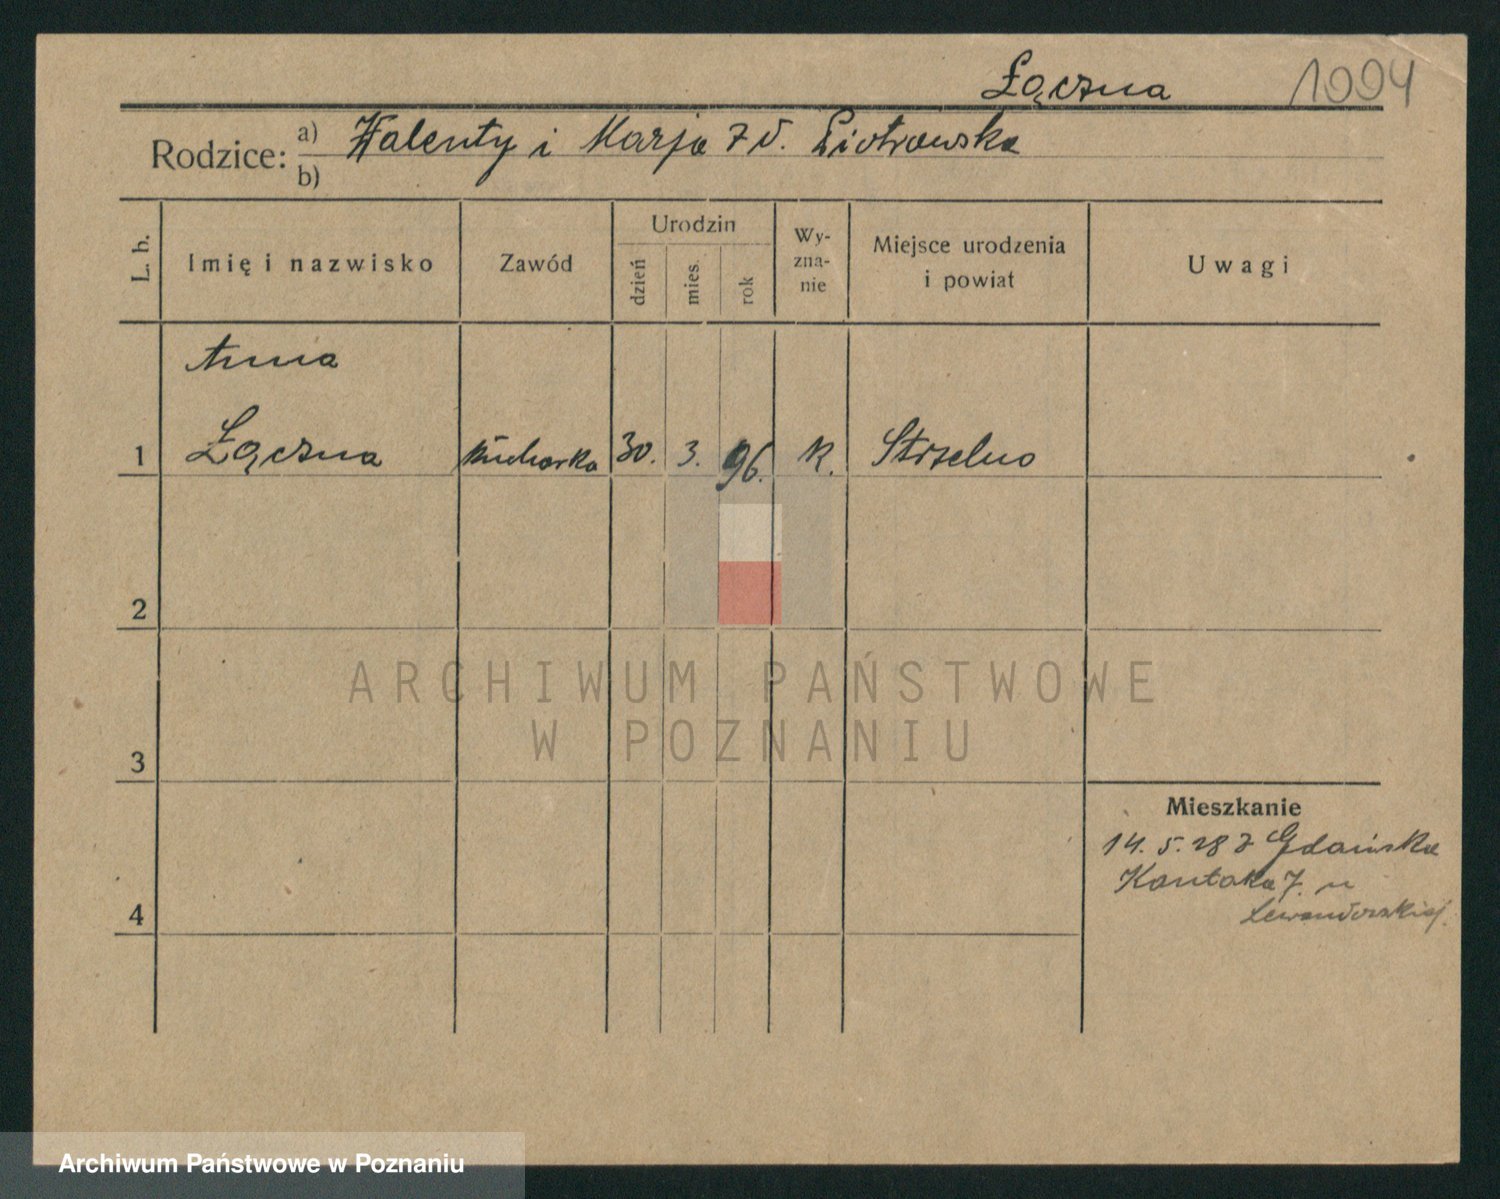 Łączna 1094
Rodzice: a) Walenty i Marja z d. Piotrowska
b)
L. b. Imię i nazwisko Zawód Urodzin dzień mies. rok Wy-zna-nie Miejsce urodzenia i powiat Uwagi
Anna
1 Łączna kucharka 30. 3. 96. k. Strzelno
2
ARCHIWUM PAŃSTWOWE
W POZNANIU
3
Mieszkanie
14. 5. 28 z Gdańska
Kantaka 7. u
Lewandowskiej.
4
Archiwum Państwowe w Poznaniu